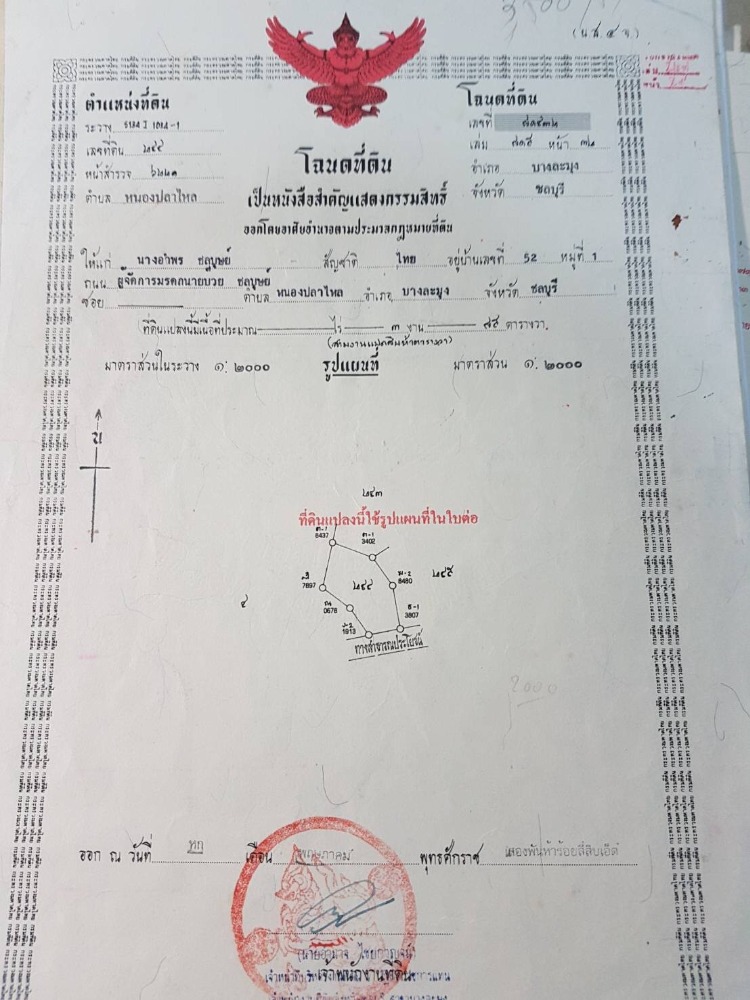 (น.ส. ๔ จ.)
ตำแหน่งที่ดิน
ระวาง 5134 I 1014-1
เลขที่ดิน ๒๔๔
หน้าสำรวจ
ตำบล หนองปลาไหล
โฉนดที่ดิน
เลขที่
เล่ม หน้า
อำเภอ บางละมุง
จังหวัด ชลบุรี
โฉนดที่ดิน
เป็นหนังสือสำคัญแสดงกรรมสิทธิ์
ออกโดยอาศัยอำนาจตามประมวลกฎหมายที่ดิน
ให้แก่ นางอำพร ชลบุษย์ สัญชาติ ไทย อยู่บ้านเลขที่ 52 หมู่ที่ 1
ถนน ผู้จัดการมรดกนายบวย ชลบุษย์
ซอย ตำบล หนองปลาไหล อำเภอ บางละมุง จังหวัด ชลบุรี
ที่ดินแปลงนี้มีเนื้อที่ประมาณ ไร่ ๓ งาน ตารางวา
มาตราส่วนในระวาง ๑:๒๐๐๐ รูปแผนที่ มาตราส่วน ๑:๒๐๐๐
น
๒๔๓
ที่ดินแปลงนี้ใช้รูปแผนที่ในใบต่อ
8437
3402
7897
๒๔๔
8480
๒๔๕
๔
0676
3807
1913
ทางสาธารณประโยชน์
2000
ออก ณ วันที่ หก เดือน พฤษภาคม พุทธศักราช สองพันห้าร้อยสี่สิบเอ็ด
เจ้าพนักงานที่ดิน